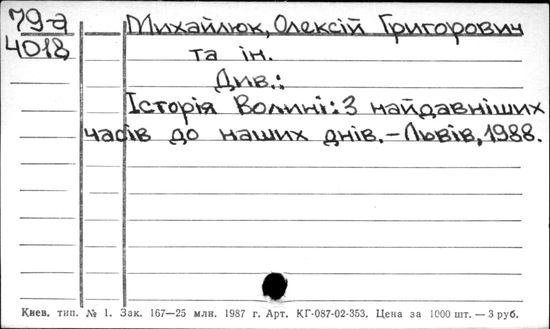 79-а
4018
Михайлюк, Олексій Григорович
та ін.
Див.:
Історія Волині: З найдавніших
часів до наших днів. – Львів, 1988.
Киев. тип. № 1. Зак. 167—25 млн. 1987 г. Арт. КГ-087-02-353. Цена за 1000 шт. — 3 руб.